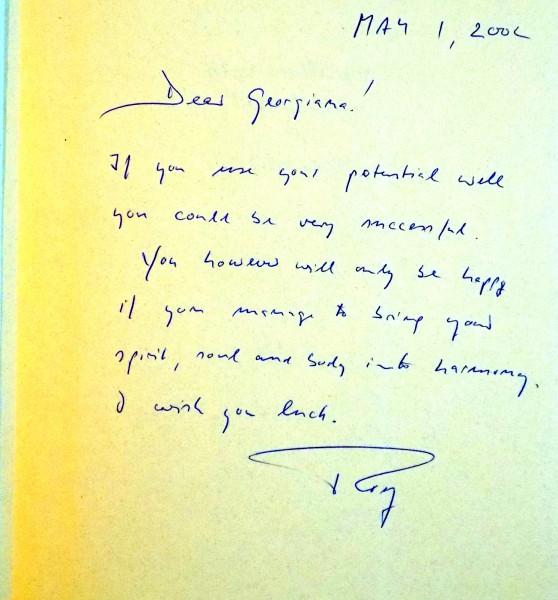 MAY 1, 2002
Dear Georgiana!
If you use your potential well
you could be very successful.
You however will only be happy
if you manage to bring your
spirit, soul and body into harmony.
I wish you luck.